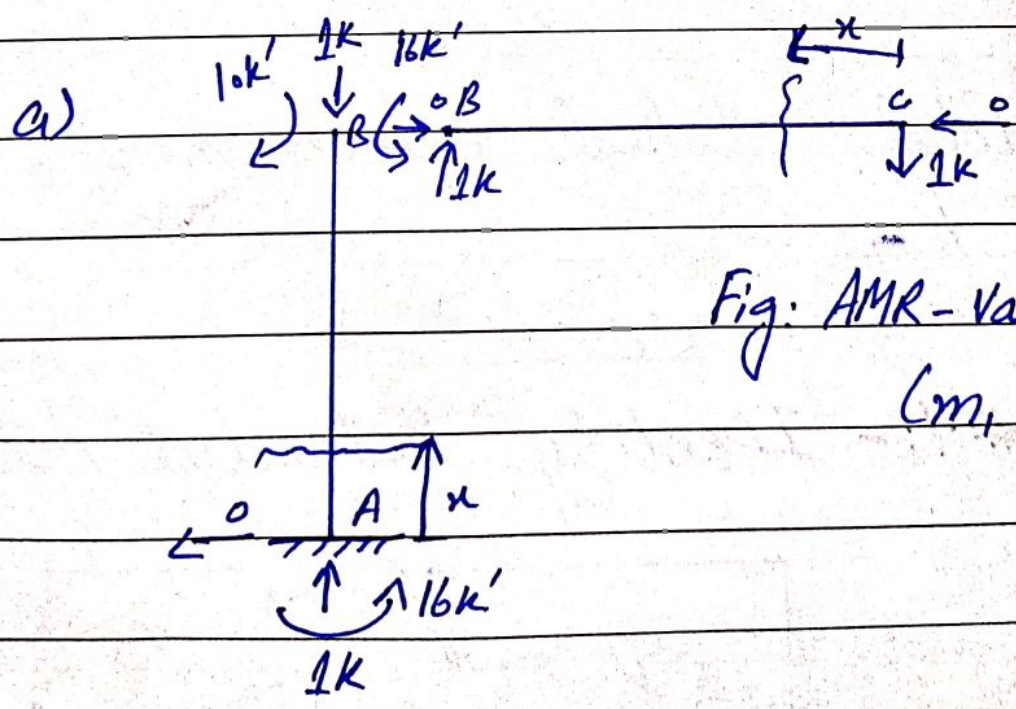 a)
10k' 1k 16k'
B o B
1k
x
C o
1k
Fig: AMR - Va
(m,
o A x
16k'
1k